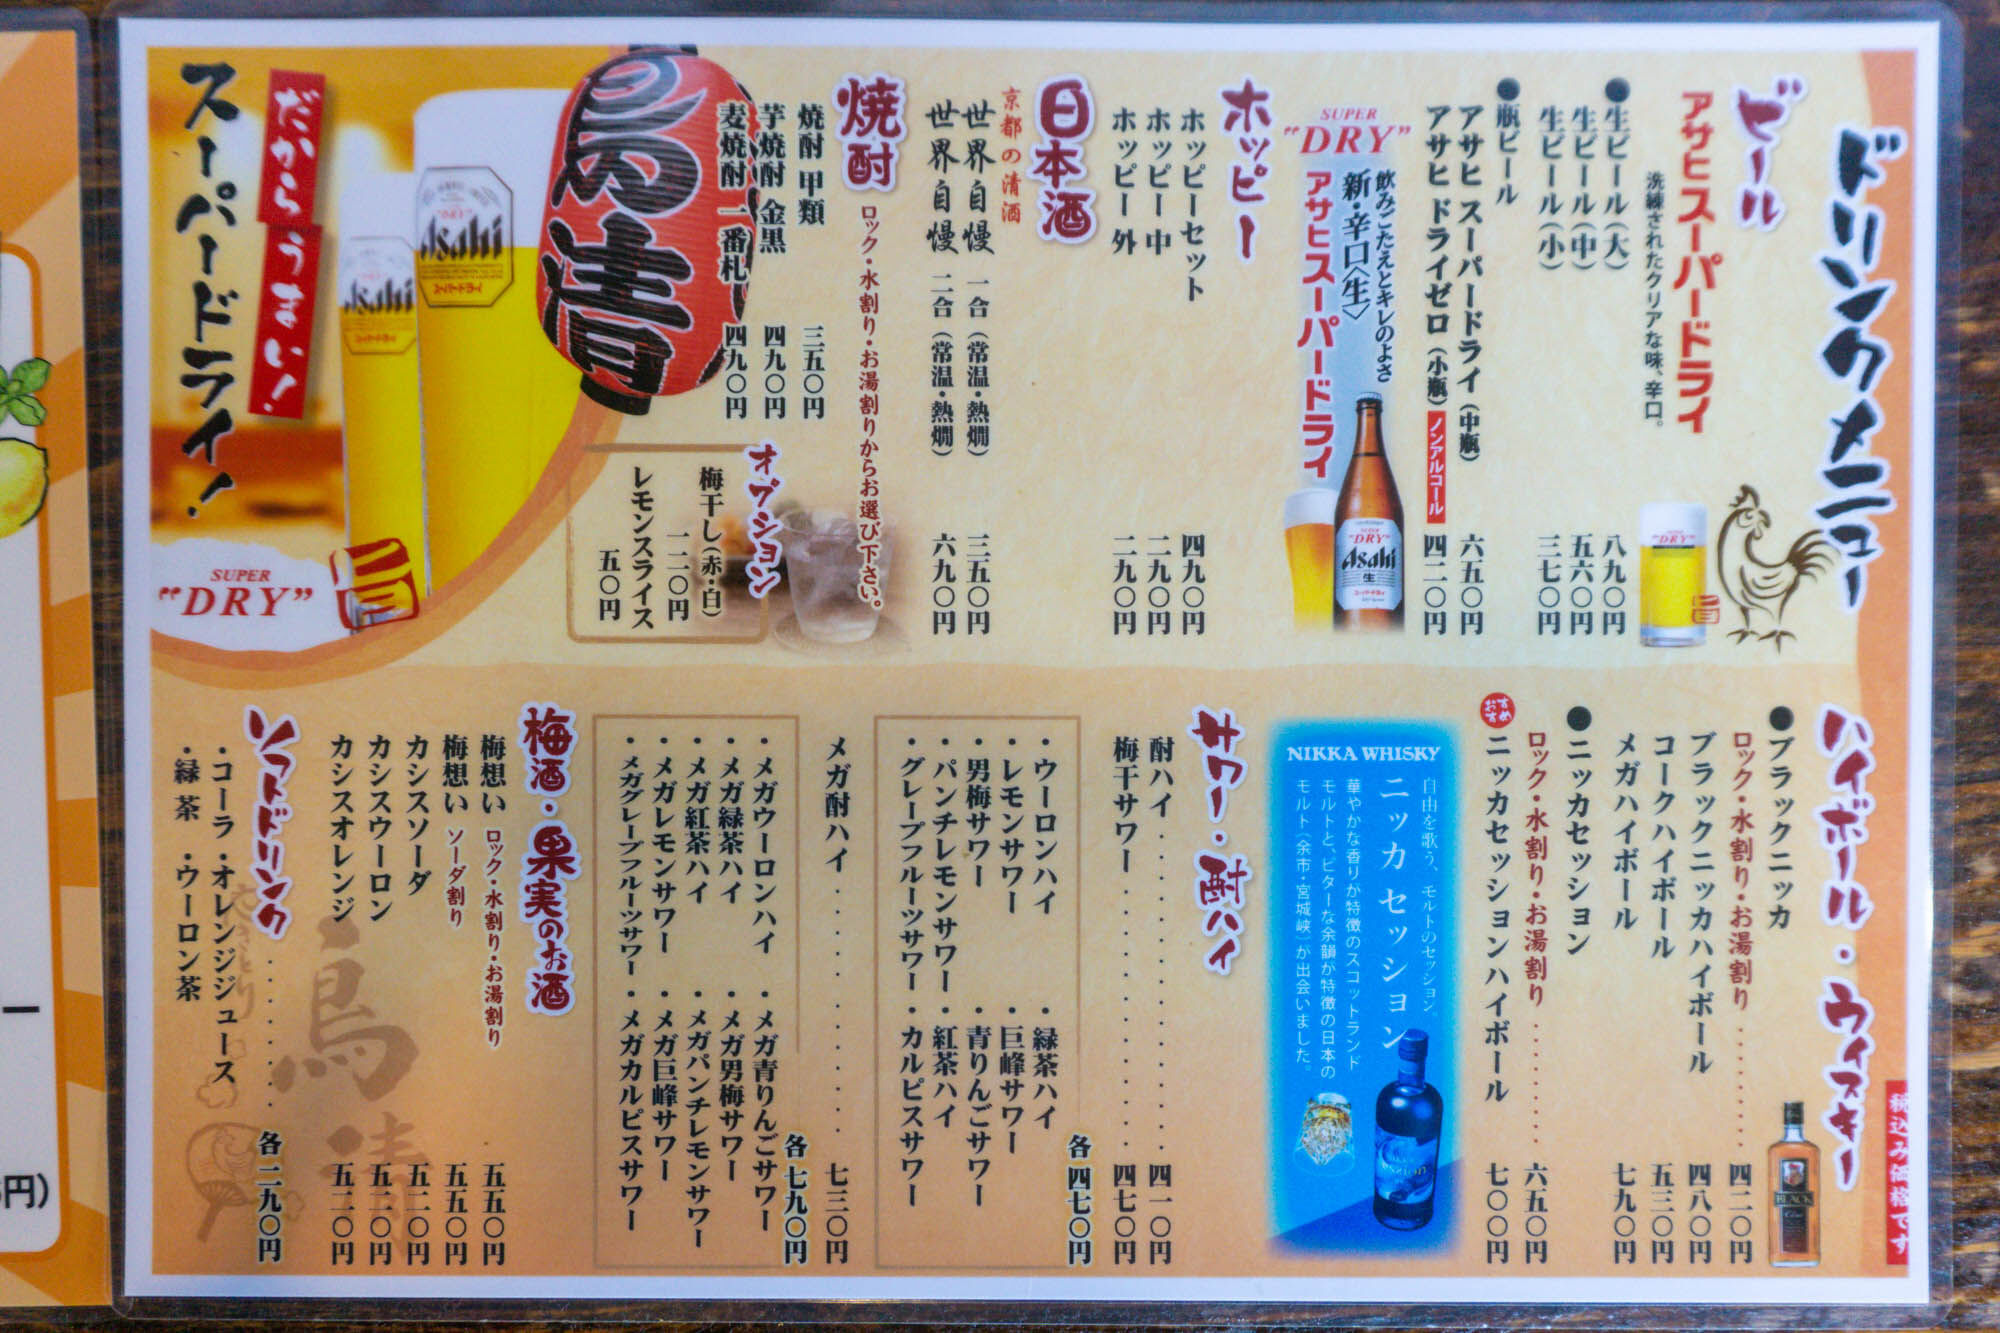 ドリンクメニュー
ビール
アサヒスーパードライ
洗練されたクリアな味、辛口。
●生ビール(大) 八九〇円
生ビール(中) 五六〇円
生ビール(小) 三七〇円
●瓶ビール
アサヒ スーパードライ(中瓶) 六五〇円
アサヒ ドライゼロ(小瓶) ノンアルコール 四二〇円
SUPER
"DRY"
飲みごたえとキレのよさ
新・辛口〈生〉
アサヒスーパードライ
SUPER "DRY"
Asahi
生
ホッピー
ホッピーセット 四九〇円
ホッピー 中 二九〇円
ホッピー 外 二九〇円
日本酒
京都の清酒
世界自慢 一合(常温・熱燗) 三五〇円
世界自慢 二合(常温・熱燗) 六九〇円
焼酎
ロック・水割り・お湯割りからお選び下さい。
焼酎 甲類 三五〇円
芋焼酎 金黒 四九〇円
麦焼酎 一番札 四九〇円
オプション
梅干し(赤・白) 一二〇円
レモンスライス 五〇円
鳥清
だからうまい!
スーパードライ!
Asahi
スーパードライ
Asahi
スーパードライ
SUPER
"DRY"
ハイボール・ウィスキー
税込み価格です
●ブラックニッカ
ロック・水割り・お湯割り 四二〇円
ブラックニッカハイボール 四八〇円
コークハイボール 五三〇円
メガハイボール 七九〇円
●ニッカセッション
ロック・水割り・お湯割り 六五〇円
おすすめ ニッカセッションハイボール 七〇〇円
BLACK
NIKKA WHISKY
自由を歌う、モルトのセッション。
ニッカ セッション
華やかな香りが特徴のスコットランド
モルトと、ビターな余韻が特徴の日本の
モルト(余市・宮城峡)が出会いました。
サワー・酎ハイ
酎ハイ 四一〇円
梅干サワー 四七〇円
・ウーロンハイ ・緑茶ハイ
・レモンサワー ・巨峰サワー
・男梅サワー ・青りんごサワー
・パンチレモンサワー ・紅茶ハイ
・グレープフルーツサワー ・カルピスサワー
各 四七〇円
メガ酎ハイ 七三〇円
・メガウーロンハイ ・メガ青りんごサワー
・メガ緑茶ハイ ・メガ男梅サワー
・メガ紅茶ハイ ・メガパンチレモンサワー
・メガレモンサワー ・メガ巨峰サワー
・メガグレープフルーツサワー ・メガカルピスサワー
各 七九〇円
梅酒・果実のお酒
梅想い ロック・水割り・お湯割り 五五〇円
梅想い ソーダ割り 五五〇円
カシスソーダ 五二〇円
カシスウーロン 五二〇円
カシスオレンジ 五二〇円
鳥清
ソフトドリンク 各 二九〇円
・コーラ ・オレンジジュース
・緑茶 ・ウーロン茶
円)